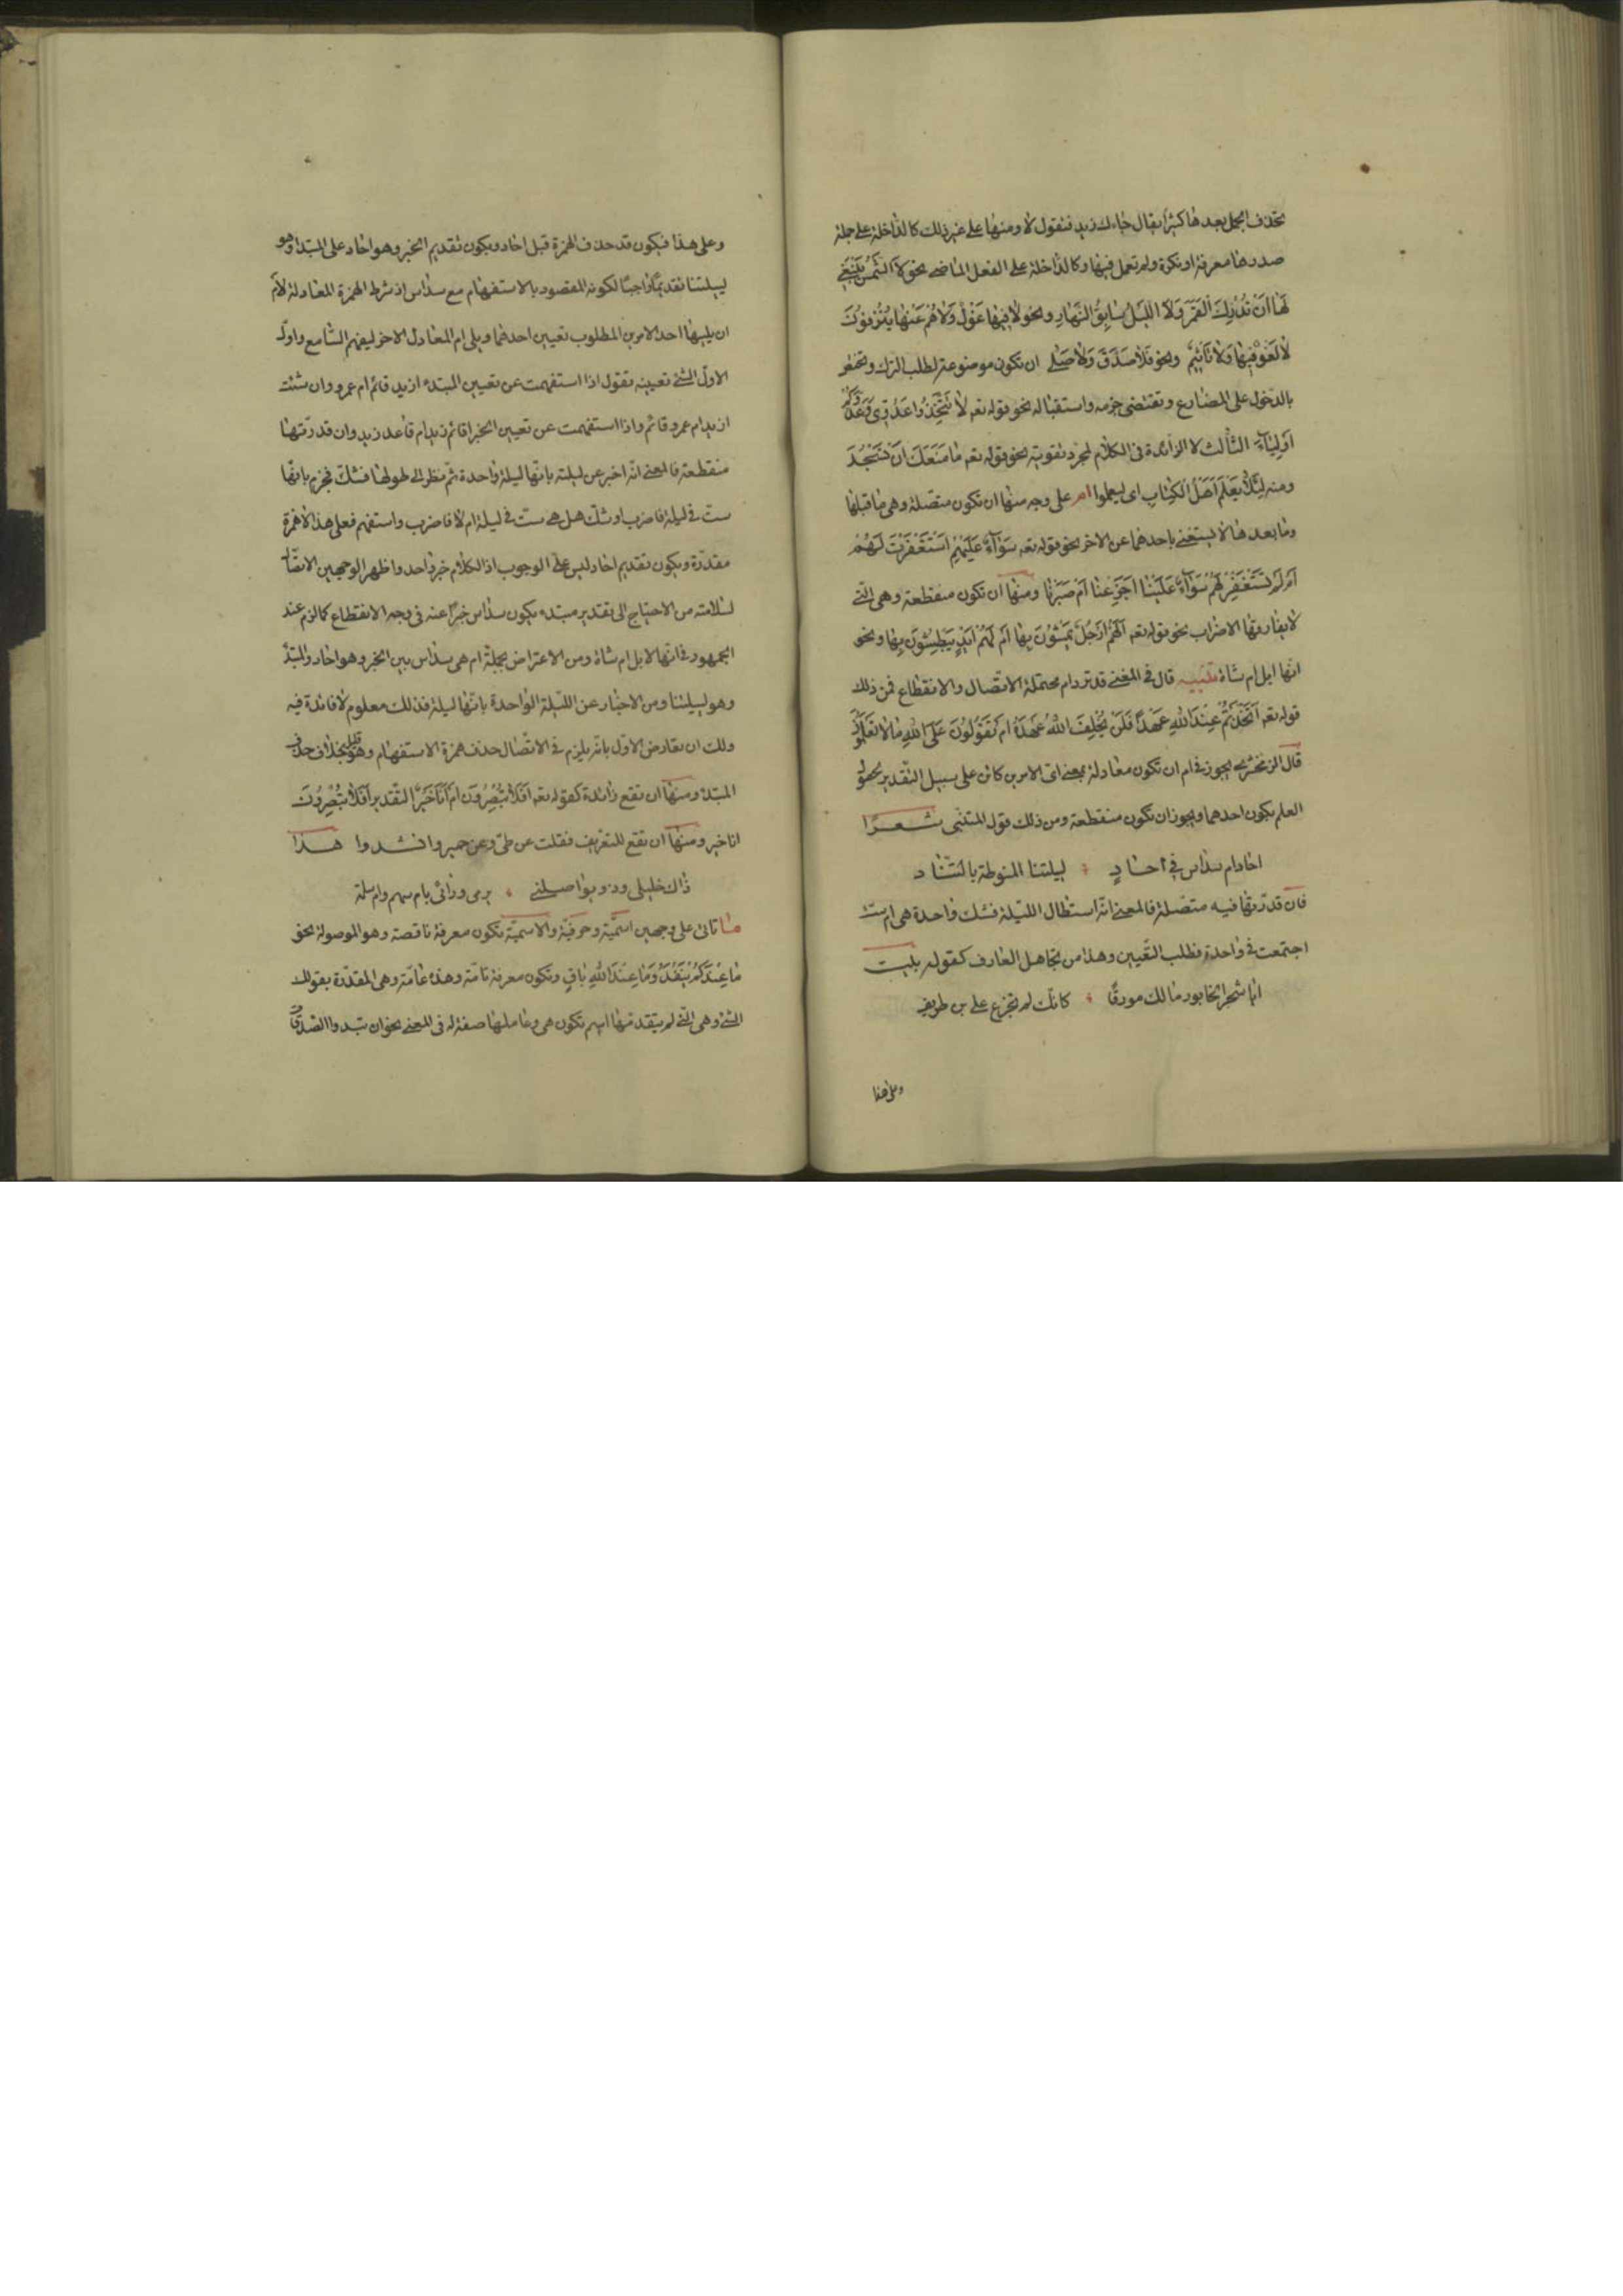 تحذف الجمل بعدها كثيرا يقال جاءك زيد فتقول لا ومنها على غير ذلك كالداخلة على جملة
صدرها معرفة او نكرة ولم تعمل فيها وكالداخلة على الفعل الماضي نحو لَا الشَّمْسُ يَنْبَغِي
لَهَا اَنْ تُدْرِكَ الْقَمَرَ وَلَا اللَّيْلُ سَابِقُ النَّهَارِ ونحو لَا فِيهَا غَوْلٌ وَلَا هُمْ عَنْهَا يُنْزَفُونَ
لَا لَغْوٌ فِيهَا وَلَا تَأْثِيمٌ ونحو فَلَا صَدَّقَ وَلَا صَلَّى ان تكون موضوعة لطلب الترك وتختص
بالدخول على المضارع وتقتضي جزمه واستقباله نحو قوله تعه لَا تَتَّخِذُوا عَدُوِّي وَعَدُوَّكُمْ
اَوْلِيَاءَ الثالث لا الزائدة في الكلام لمجرد تقويته نحو قوله تعه مَا مَنَعَكَ اَنْ تَسْجُدَ
ومنه لِئَلَّا يَعْلَمَ اَهْلُ الْكِتَابِ اى ليعلموا ام على وجه منها ان تكون متصلة وهى ما قبلها
وما بعدها لا يستغنى باحدهما عن الاخر نحو قوله تعه سَوَاءٌ عَلَيْهِمْ اَسْتَغْفَرْتَ لَهُمْ
اَمْ لَمْ تَسْتَغْفِرْ لَهُمْ سَوَاءٌ عَلَيْنَا اَجَزِعْنَا اَمْ صَبَرْنَا ومنها ان تكون منقطعة وهى التى
لا يفارقها الاضراب نحو قوله تعه اَلَهُمْ اَرْجُلٌ يَمْشُونَ بِهَا اَمْ لَهُمْ اَيْدٍ يَبْطِشُونَ بِهَا ونحو
انها ابل ام شاة تنبيه قال في المغنى قد ترد ام محتملة الاتصال والانقطاع فمن ذلك
قوله تعه اَتَّخَذْتُمْ عِنْدَ اللهِ عَهْدًا فَلَنْ يُخْلِفَ اللهُ عَهْدَهُ اَمْ تَقُولُونَ عَلَى اللهِ مَا لَا تَعْلَمُونَ
قال الزمخشرى يجوز في ام ان تكون معادلة بمعنى اى الامرين كائن على سبيل التقدير لحصول
العلم بكون احدهما ويجوز ان تكون منقطعة ومن ذلك قول المتنبى شعرا
احاد ام سداس في احاد لييلتنا المنوطة بالتناد
فان قدرتها فيه متصلة فالمعنى انه استطال الليلة فشك واحدة هى ام ست
اجتمعت في واحدة فطلب التعيين وهذا من تجاهل العارف كقوله بليت
ايا شجر الخابور مالك مورقا كانك لم تجزع على بن طريف
وعلى هذا
وعلى هذا فيكون قد حذف الهمزة قبل احاد ويكون تقديم الخبر وهو احاد على المبتدا وهو
لييلتنا تقديما واجبا لكونه المقصود بالاستفهام مع سداس اذ شرط الهمزة المعادلة لام
ان يليها احد الامرين المطلوب تعيين احدهما ويلى ام المعادل الاخر ليفهم السامع واول
الاول الشئ تعيينه تقول اذا استفهمت عن تعيين المبتدء ازيد قائم ام عمرو وان شئت
ازيد ام عمرو قائم واذا استفهمت عن تعيين الخبر اقائم زيد ام قاعد زيد وان قدرتها
منقطعة فالمعنى انه اخبر عن ليلته بانها ليلة واحدة ثم نظر الى طولها فشك فجزم بانها
ست في ليلة فاضرب او شك هل هى ست في ليلة ام لا فاضرب واستفهم فعلى هذا لا همزة
مقدرة ويكون تقديم احاد ليس على الوجوب اذ الكلام خبر واحد واظهر الوجهين الاتصال
لسلامته من الاحتياج الى تقدير مبتدء يكون سداس خبرا عنه في وجه الانقطاع كما لزم عند
الجمهور في انها لابل ام شاة ومن الاعتراض بجملة ام هى سداس بين الخبر وهو احاد والمبتدء
وهو لييلتنا ومن الاخبار عن الليلة الواحدة بانها ليلة فذلك معلوم لا فائدة فيه
ولك ان تعارض الاول بانه يلزم في الاتصال حذف همزة الاستفهام وهو قليل بخلاف حذف
المبتدء ومنها ان تقع زائدة كقوله تعه اَفَلَا تُبْصِرُونَ اَمْ اَنَا خَيْرٌ التقدير اَفَلَا تُبْصِرُونَ
انا خير ومنها ان تقع للتعريف فقلت عن طى وعن حمير وانشدوا هذا
ذاك خليلى وذو يواصلنى يرمى ورائى بام سهم وام سلمة
ما تاتى على وجهين اسمية وحرفية والاسمية تكون معرفة ناقصة وهو الموصولة نحو
مَا عِنْدَكُمْ يَنْفَدُ وَمَا عِنْدَ اللهِ بَاقٍ وتكون معرفة تامة وهذه عامة وهى المقدرة بقولك
الشئ وهى التى لم يتقدمها اسم تكون هى وعاملها صفة له في المعنى نحو ان تبدوا الصدقات